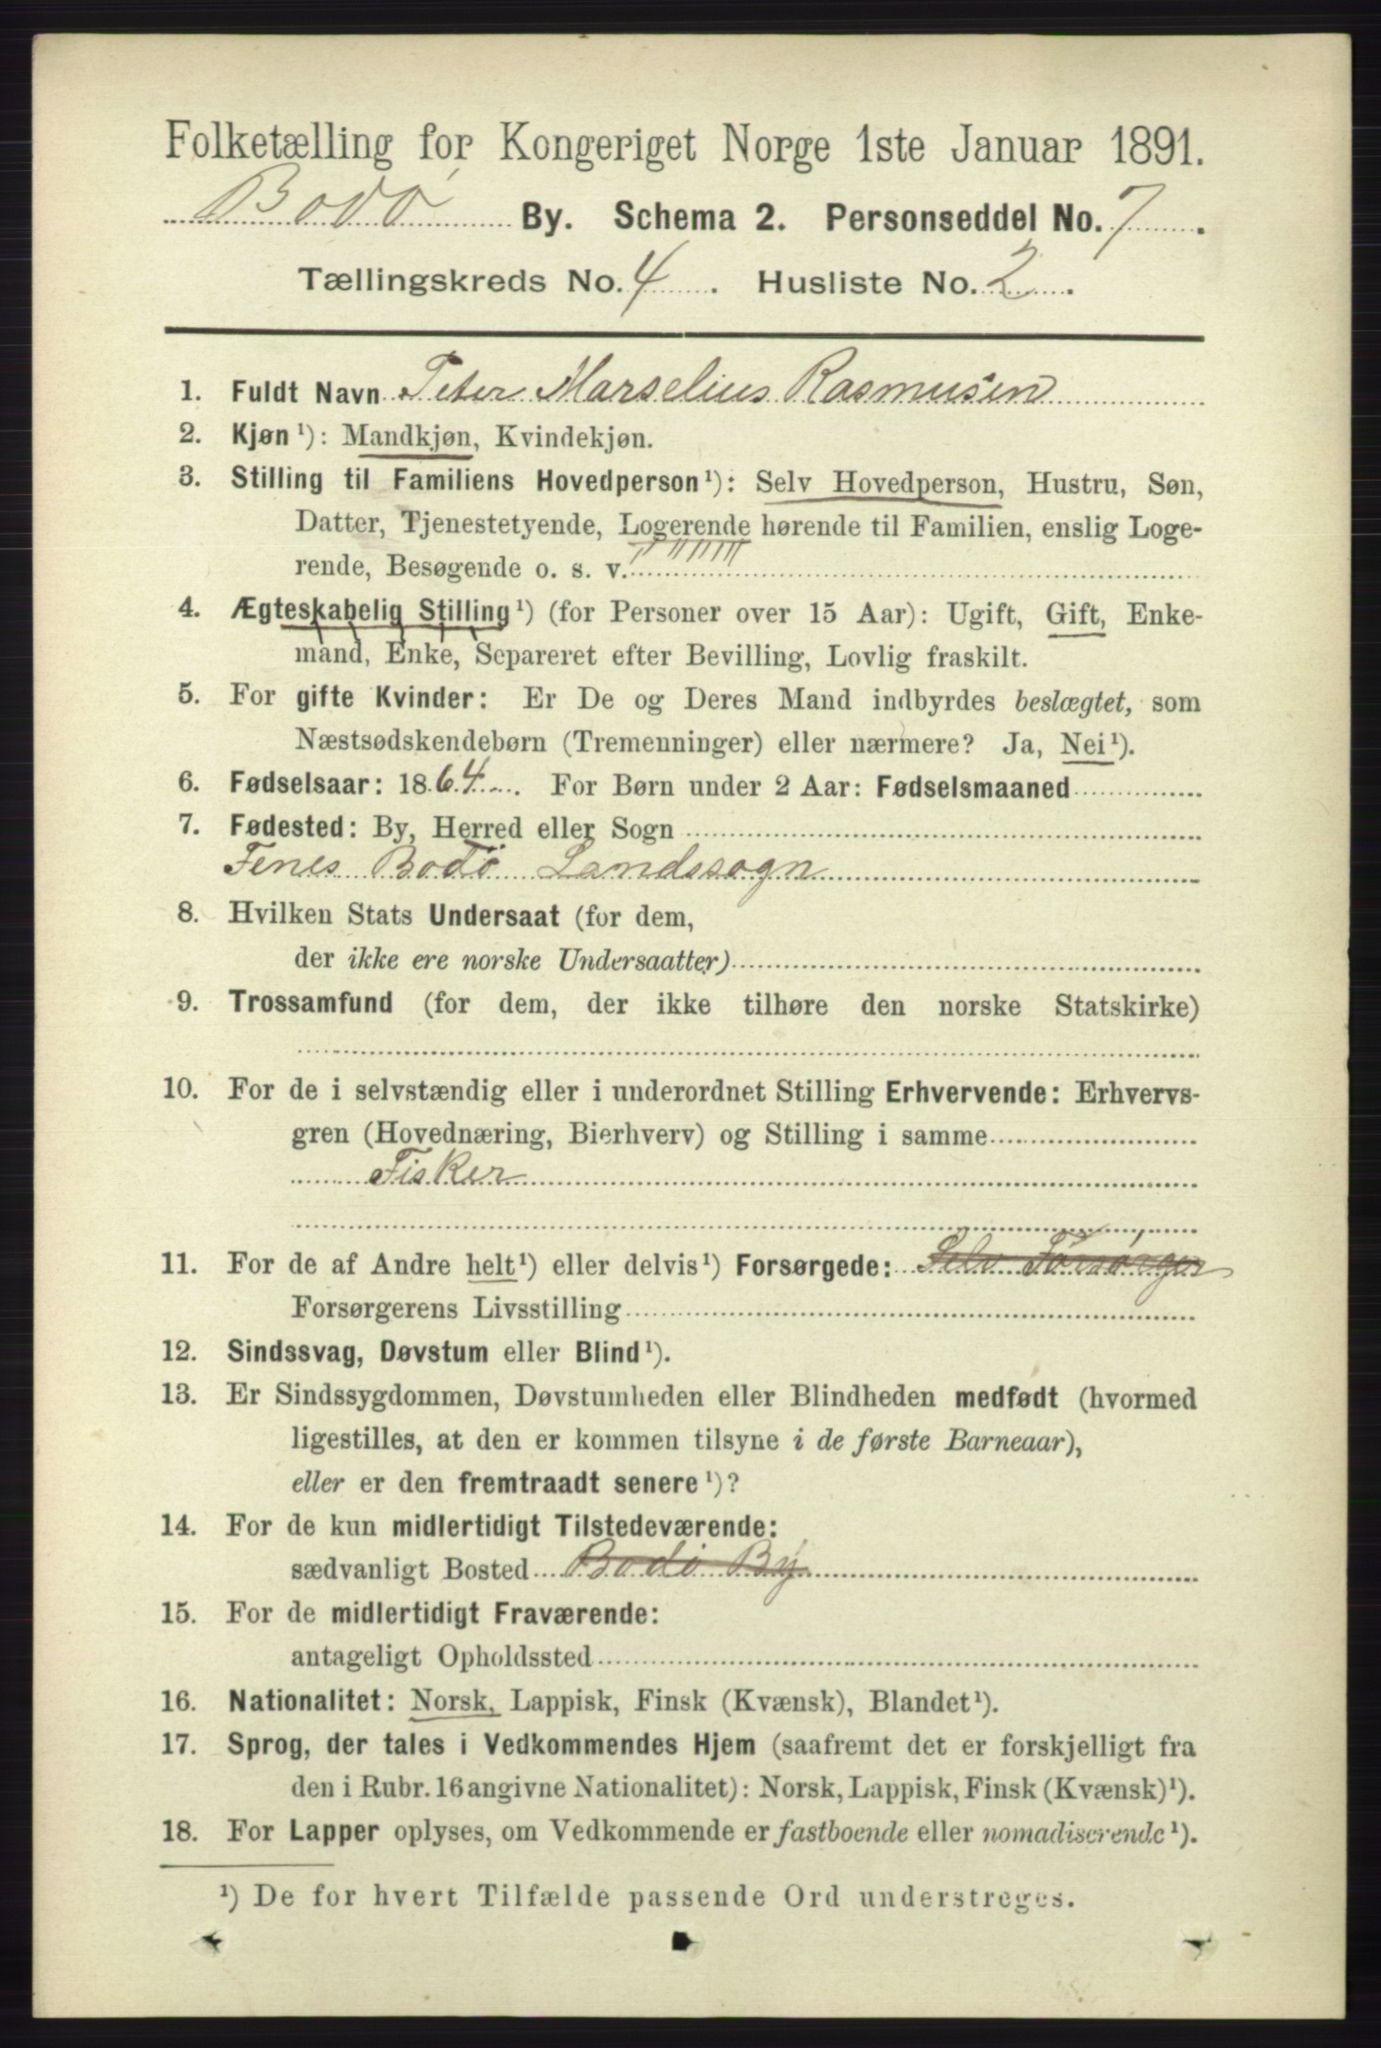 Folketælling for Kongeriget Norge 1ste Januar 1891.
Bodø By. Schema 2. Personseddel No. 7.
Tællingskreds No. 4. Husliste No. 2.
1. Fuldt Navn Peter Marselius Rasmusen
2. Kjøn ¹): Mandkjøn, Kvindekjøn.
3. Stilling til Familiens Hovedperson ¹): Selv Hovedperson, Hustru, Søn,
Datter, Tjenestetyende, Logerende hørende til Familien, enslig Loge-
rende, Besøgende o. s. v.
4. Ægteskabelig Stilling ¹) (for Personer over 15 Aar): Ugift, Gift, Enke-
mand, Enke, Separeret efter Bevilling, Lovlig fraskilt.
5. For gifte Kvinder: Er De og Deres Mand indbyrdes beslægtet, som
Næstsødskendebørn (Tremenninger) eller nærmere? Ja, Nei ¹).
6. Fødselsaar: 1864. For Børn under 2 Aar: Fødselsmaaned
7. Fødested: By, Herred eller Sogn
Fenes Bodø Landssogn
8. Hvilken Stats Undersaat (for dem,
der ikke ere norske Undersaatter)
9. Trossamfund (for dem, der ikke tilhøre den norske Statskirke)
10. For de i selvstændig eller i underordnet Stilling Erhvervende: Erhvervs-
gren (Hovednæring, Bierhverv) og Stilling i samme
Fisker
11. For de af Andre helt ¹) eller delvis ¹) Forsørgede: Selv Forsørger
Forsørgerens Livsstilling
12. Sindssvag, Døvstum eller Blind ¹).
13. Er Sindssygdommen, Døvstumheden eller Blindheden medfødt (hvormed
ligestilles, at den er kommen tilsyne i de første Barneaar),
eller er den fremtraadt senere ¹)?
14. For de kun midlertidigt Tilstedeværende:
sædvanligt Bosted Bodø By
15. For de midlertidigt Fraværende:
antageligt Opholdssted
16. Nationalitet: Norsk, Lappisk, Finsk (Kvænsk), Blandet ¹).
17. Sprog, der tales i Vedkommendes Hjem (saafremt det er forskjelligt fra
den i Rubr. 16 angivne Nationalitet): Norsk, Lappisk, Finsk (Kvænsk) ¹).
18. For Lapper oplyses, om Vedkommende er fastboende eller nomadiserende ¹).
¹) De for hvert Tilfælde passende Ord understreges.